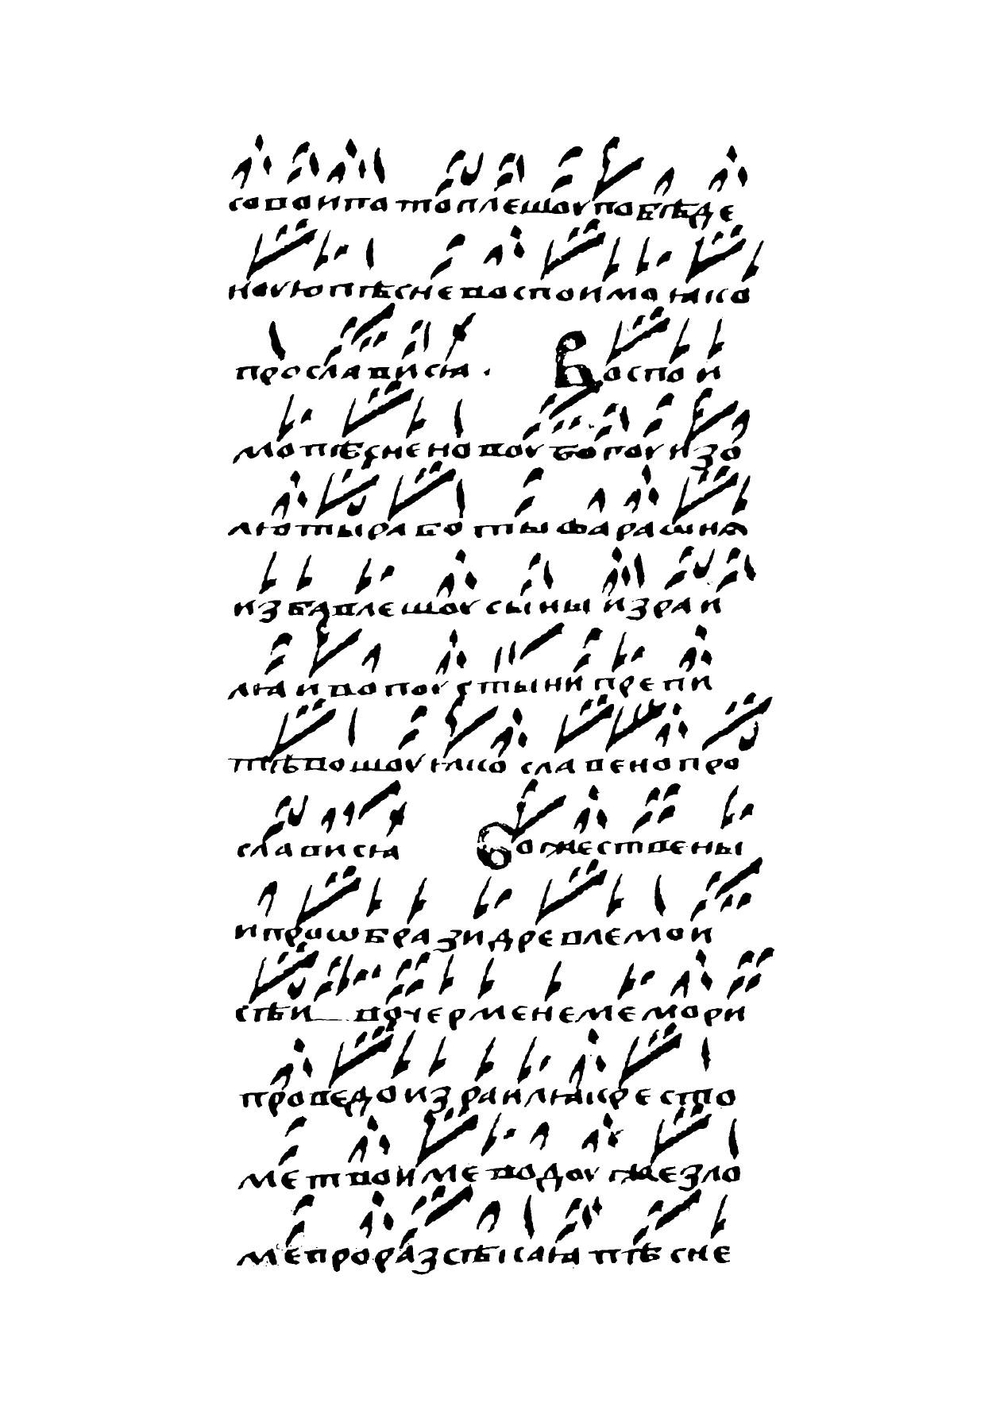 со во и па то пле шоу по бѣ де
ноу ю пѣ сне во спо и мо ꙗ ко
про сла ви сѧ .  Во спо и
мо пѣ сне но воу бо гоу и зо
лю ты ра бо ты фа ра ѡ нѧ
из ба вле шоу сы ны из ра и
лѧ и во поу сты ни пре пи
тѣ во шоу ꙗ ко сла ве но про
сла ви сѧ  Бо же стве ны
и про ѡ бра зи дре вле мо и
сѣ и во че рме не ме мо ри
про ве до из ра и лѧ кре сто
ме тво и ме во доу же зло
ме про ра з сѣ каѧ пѣ сне